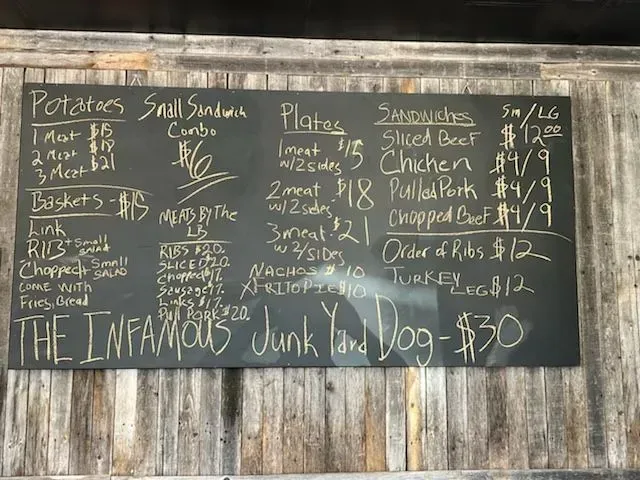 Potatoes
1 Meat $15
2 Meat $18
3 Meat $21
Baskets - $15
Link
RIB + Small SALAD
Chopped + Small SALAD
COME WITH
Fries, Bread
Small Sandwich
Combo
$6
MEATS BY THE
LB
RIBS $20.
SLICED $20.
Chopped $17.
Sausage 17.
Links $17.
Pull PORK $20.
Plates
1 meat $15
w/2 sides
2 meat $18
w/2 sides
3 meat $21
w 2/sides
NACHOS $10
FRITO PIE $10
SANDWICHES Sm/LG
Sliced Beef $12.00
Chicken $4/9
Pulled Pork $4/9
Chopped Beef $4/9
Order of Ribs $12
TURKEY LEG $12
THE INFAMOUS Junk Yard Dog - $30